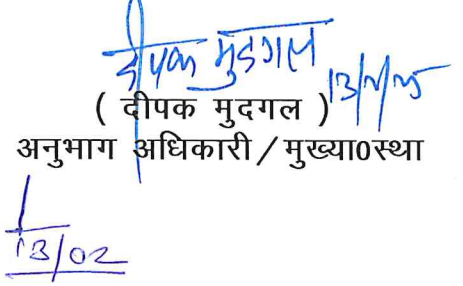 दीपक मुदगल 13/2/25
( दीपक मुदगल )
अनुभाग अधिकारी / मुख्या0स्था
13/02